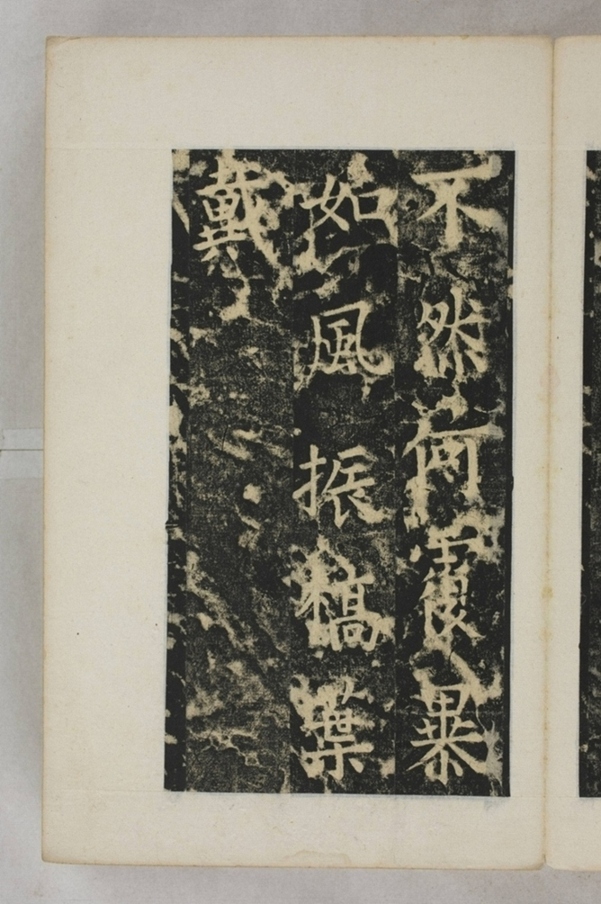 不然何覆暴
如風振槁葉
戴